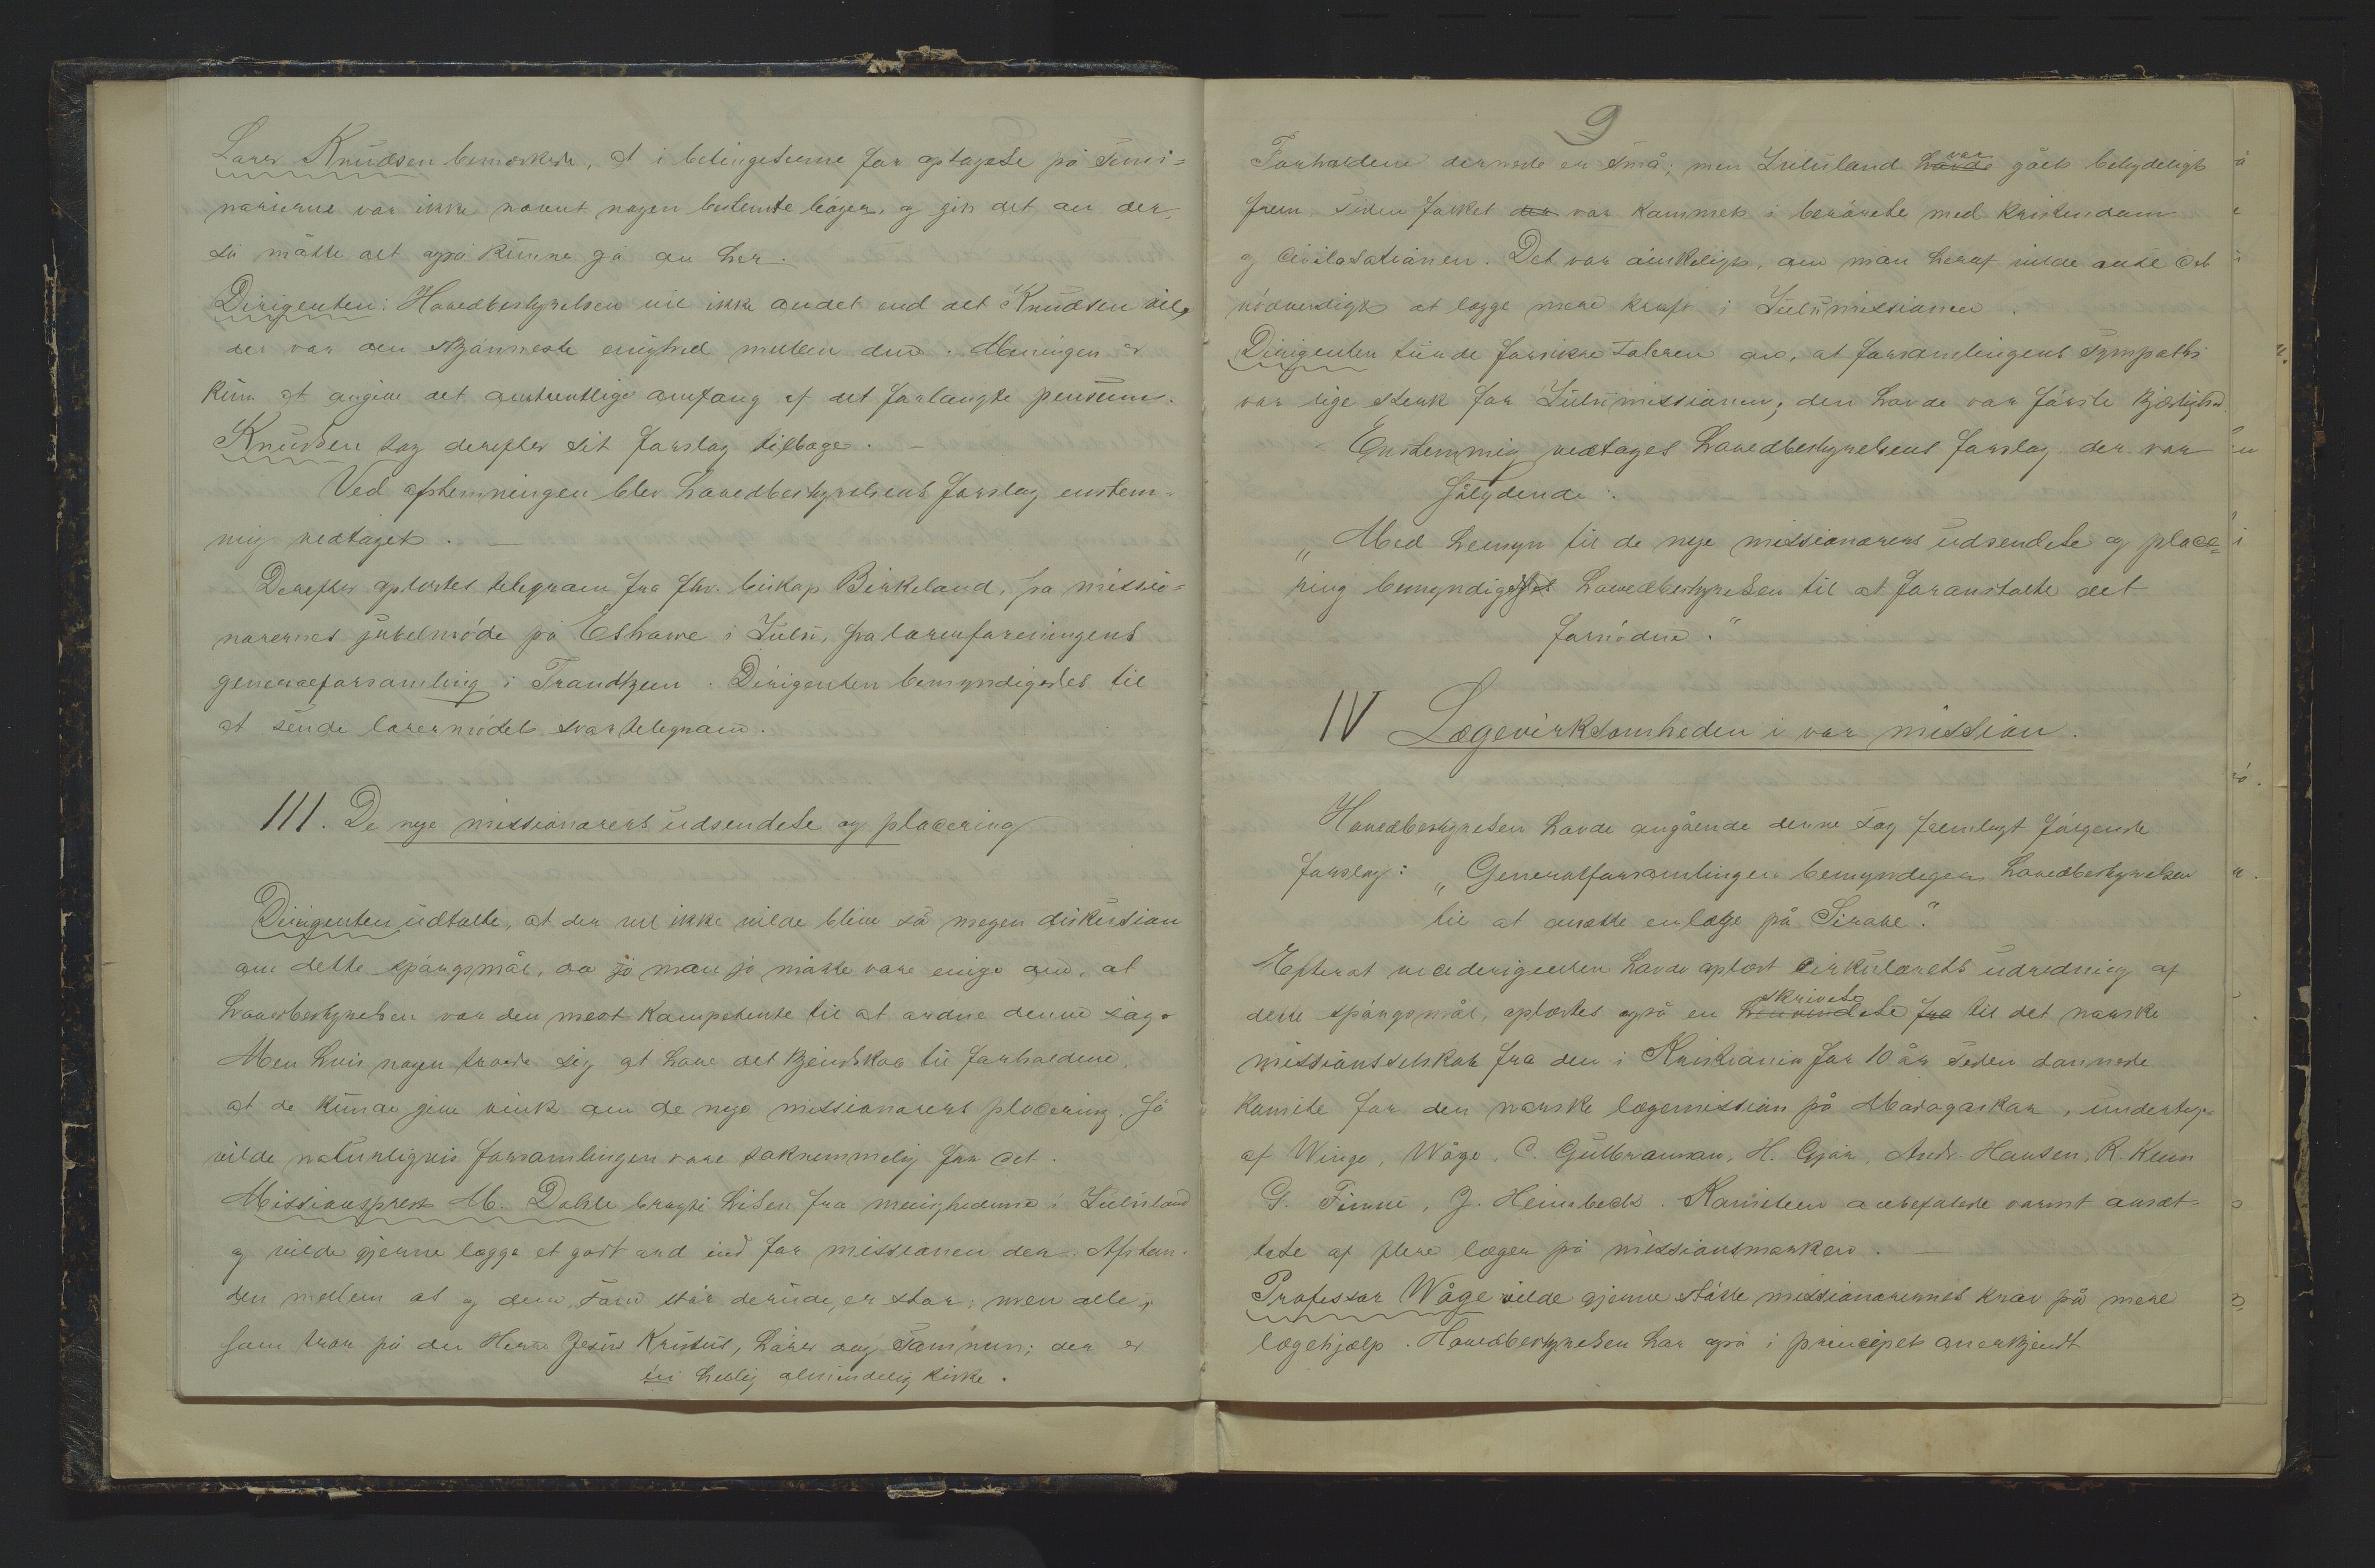 Lærer Knudsen bemærkede, at i betingelserne for optagelse på Semi=
narierne var ikke nævnt nogen bestemte bøger, og gik det an der,
så måtte det også kunne gå an her.
Dirigenten: Hovedbestyrelsen vil ikke andet end det Knudsen vil,
der var den skjønneste enighed mellem dem. Meningen er
kun at angive det omtrentlige omfang af det forlangte pensum.
Knudsen tog derefter sit forslag tilbage. –
Ved afstemningen blev hovedbestyrelsens forslag enstem-
mig vedtaget. —
Derefter oplæstes telegram fra fhv. biskop Birkeland, fra missio=
nærernes jubelmøde på Eshowe i Zulu, fra lærerforeningens
generalforsamling i Trondhjem. Dirigenten bemyndigedes til
at sende lærermødet svartelegram.
III. De nye missionærers udsendelse og placering
Dirigenten udtalte, at der vel ikke vilde blive så megen diskussion
om dette spørgsmål, da jo man jo måtte være enige om, at
hovedbestyrelsen var den mest kompetente til at ordne denne sag.
Men hvis nogen troede sig at have det kjendskab til forholdene,
at de kunde give vink om de nye missionærers placering, så
vilde naturligvis forsamlingen være taknemmelig for det.
Missionsprest M. Dahle bragte hilsen fra menighederne i Zululand
og vilde gjerne lægge et godt ord ind for missionen der. Afstan-
den mellem os og dem, som står derude, er stor; men alle,
som tror på den Herre Jesus Kristus, hører dog sammen; der er
én hellig almindelig kirke.
9
Forholdene dernede er små; men Zululand havde var gået betydeligt
frem siden folket der var kommet i berørelse med kristendom
og civilisationen. Det var ønskeligt, om man heraf vilde anse det
nødvendigt at lægge mere kraft i Zulumissionen.
Dirigenten turde forsikre taleren om, at forsamlingens sympathi
var lige sterk for Zulumissionen; den havde vor første kjærlighed.
Enstemmig vedtages hovedbestyrelsens forslag, der var
sålydende:
„Med hensyn til de nye missionærers udsendelse og place=
ring bemyndiges hovedbestyrelsen til at foranstalte det
fornødne."
IV Lægevirksomheden i vor mission.
Hovedbestyrelsen havde angående denne sag fremlagt følgende
forslag: „Generalforsamlingen bemyndiger hovedbestyrelsen
til at ansætte en læge på Sirabe."
Efterat vicedirigenten havde oplæst cirkulærets udredning af
dette spørgsmål, oplæstes også en henvendelse skrivelse fra til det norske
missionsselskab fra den i Kristiania for 10 år siden dannede
komite for den norske lægemission på Madagaskar, undertegn
af Winge, Wåge, C. Gulbranson, H. Gjør, Andr. Hansen, R. Kenn
G. Finne, J. Heimbeck. Komiteen anbefalede varmt ansæt-
telse af flere læger på missionsmarken. —
Professor Wåge vilde gjerne støtte missionærernes krav på mere
lægehjælp. Hovedbestyrelsen har også i principet anerkjendt